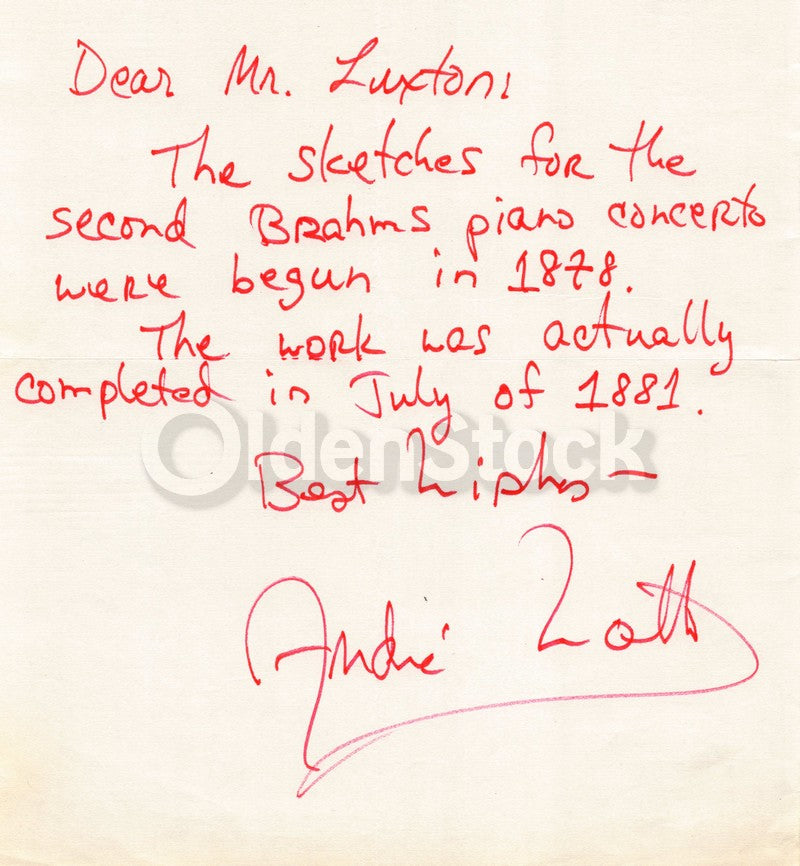 Dear Mr. Luxton:
The sketches for the
second Brahms piano concerto
were begun in 1878.
The work was actually
completed in July of 1881.
OldenStock
Best Wishes —
André Watts